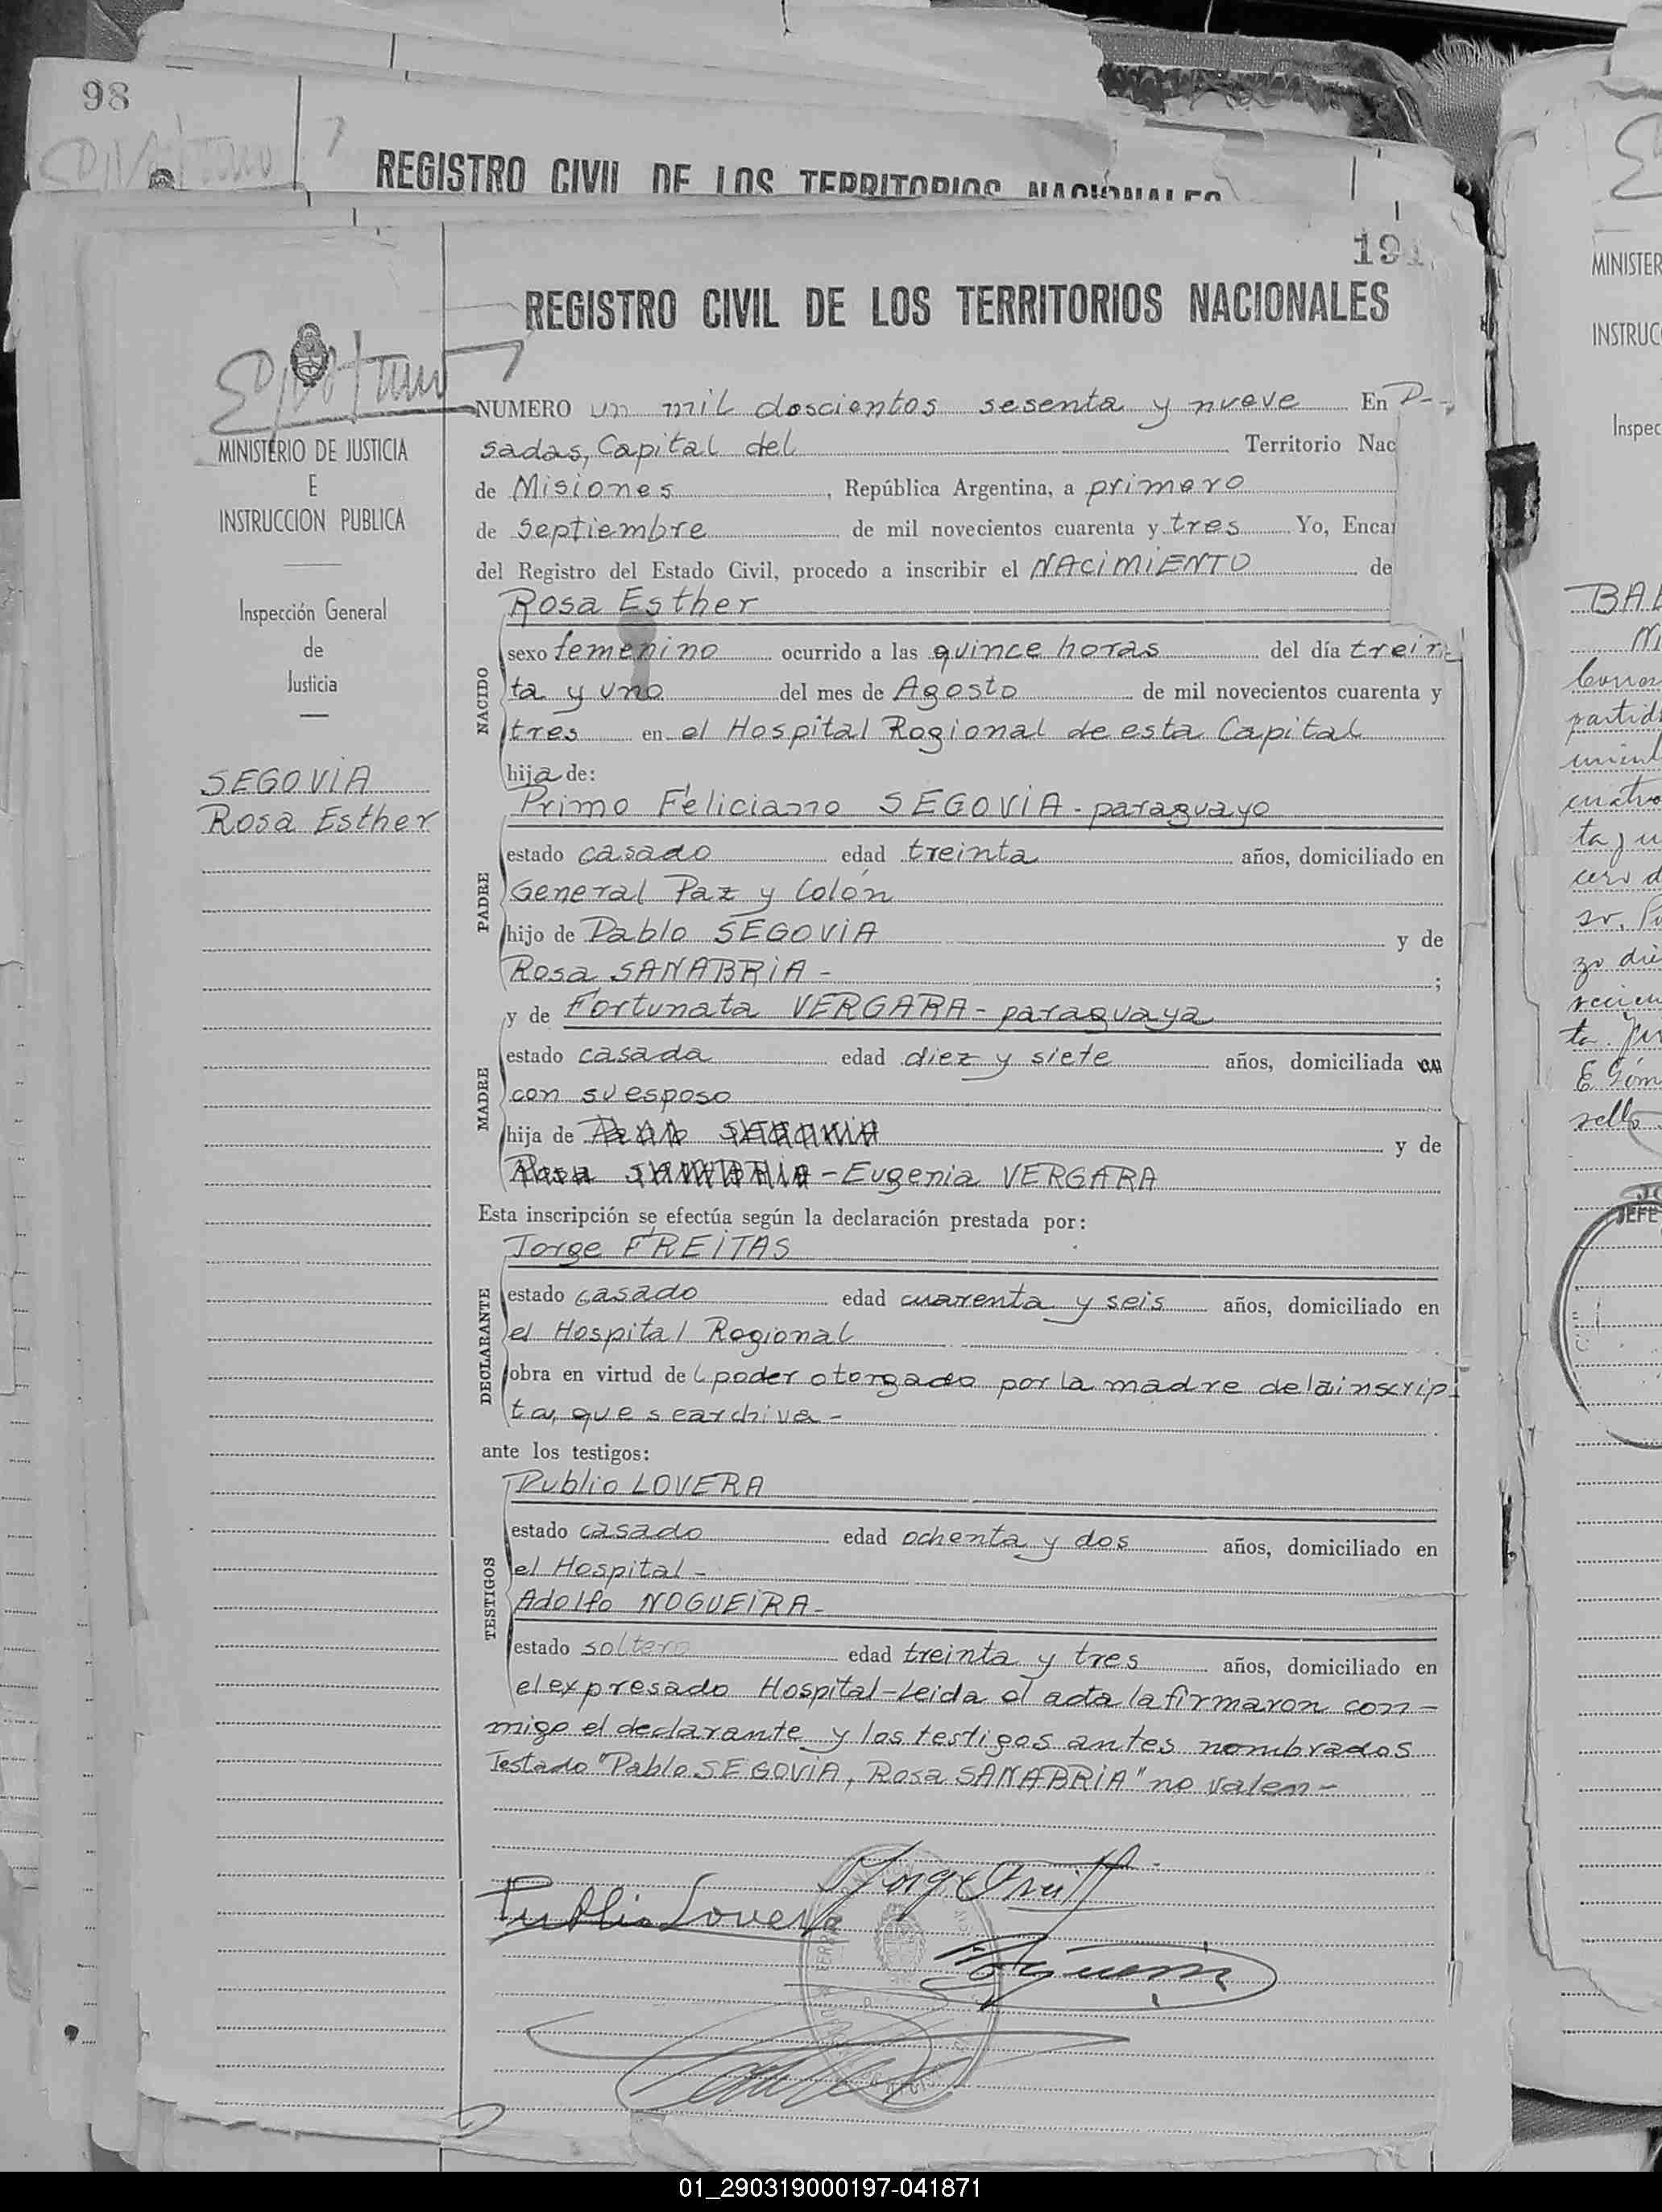 98
REGISTRO CIVIL DE LOS TERRITORIOS NACIONALES
191
REGISTRO CIVIL DE LOS TERRITORIOS NACIONALES
MINISTERIO DE JUSTICIA
E
INSTRUCCION PUBLICA
Inspección General
de
Justicia
SEGOVIA
Rosa Esther
NUMERO un mil doscientos sesenta y nueve En P-
sadas, Capital del Territorio Nac
de Misiones, República Argentina, a primero
de Septiembre de mil novecientos cuarenta y tres Yo, Encar
del Registro del Estado Civil, procedo a inscribir el NACIMIENTO de
NACIDO
Rosa Esther
sexo femenino ocurrido a las quince horas del día trein-
ta y uno del mes de Agosto de mil novecientos cuarenta y
tres en el Hospital Regional de esta Capital
hija de:
PADRE
Primo Feliciano SEGOVIA - paraguayo
estado casado edad treinta años, domiciliado en
General Paz y Colón
hijo de Pablo SEGOVIA y de
Rosa SANABRIA - ;
MADRE
y de Fortunata VERGARA - paraguaya
estado casada edad diez y siete años, domiciliada
con su esposo
hija de Pablo SEGOVIA y de
Rosa SANABRIA - Eugenia VERGARA
Esta inscripción se efectúa según la declaración prestada por:
DECLARANTE
Jorge FREITAS
estado casado edad cuarenta y seis años, domiciliado en
el Hospital Regional
obra en virtud de l poder otorgado por la madre de la inscrip-
ta, que se archiva -
ante los testigos:
TESTIGOS
Publio LOVERA
estado casado edad ochenta y dos años, domiciliado en
el Hospital -
Adolfo NOGUEIRA -
estado soltero edad treinta y tres años, domiciliado en
el expresado Hospital - Leida el acta la firmaron con-
migo el declarante y los testigos antes nombrados
Testado "Pablo SEGOVIA, Rosa SANABRIA" no valen -
Publio Lovera
MINISTER
INSTRUC
Inspec
JEFE
01_290319000197-041871